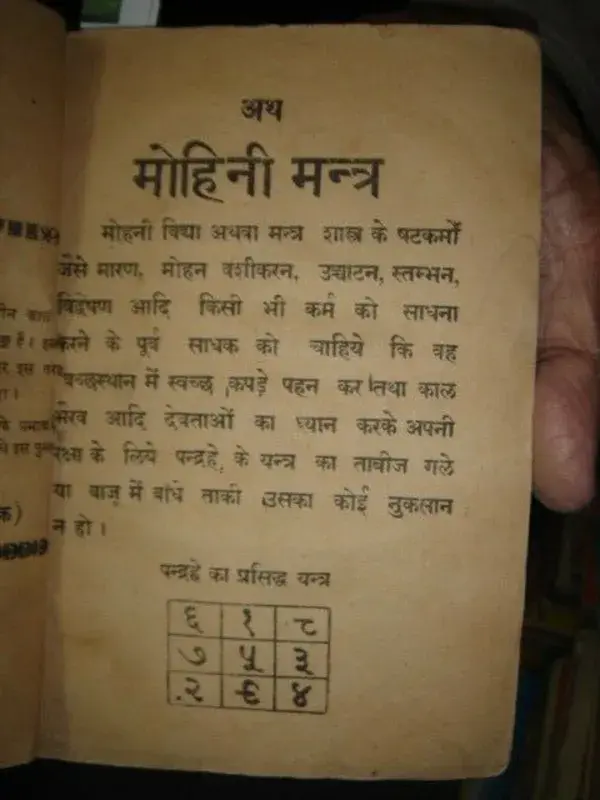 अथ
मोहिनी मन्त्र
मोहनी विद्या अथवा मन्त्र शास्त्र के षटकर्मों
जैसे मारण, मोहन वशीकरन, उच्चाटन, स्तम्भन,
विद्वेषण आदि किसी भी कर्म को साधना
करने के पूर्व साधक को चाहिये कि वह
स्वच्छस्थान में स्वच्छ कपड़े पहन कर तथा काल
भैरव आदि देवताओं का ध्यान करके अपनी
रक्षा के लिये पन्द्रहे, के यन्त्र का ताबीज गले
या बाजू में बांधे ताकी उसका कोई नुकसान
न हो ।
पन्द्रहे का प्रसिद्ध यन्त्र
६ १ ८
७ ५ ३
२ ९ ४